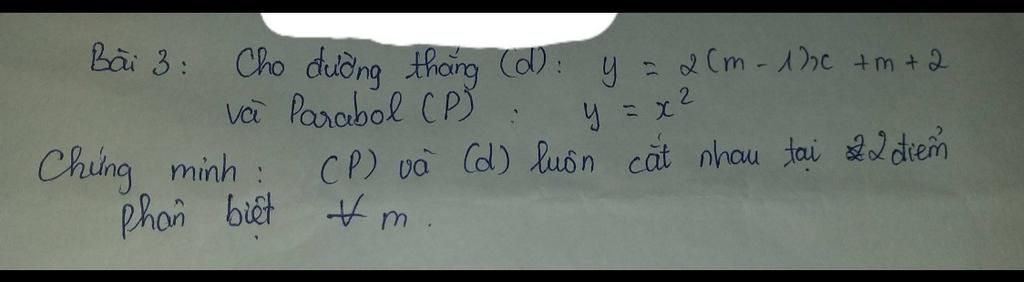 Bài 3: Cho đường thẳng (d): y = 2(m - 1)x + m + 2
và Parabol (P) : y = x²
Chứng minh: (P) và (d) luôn cắt nhau tại 2 điểm
phân biệt ∀ m.